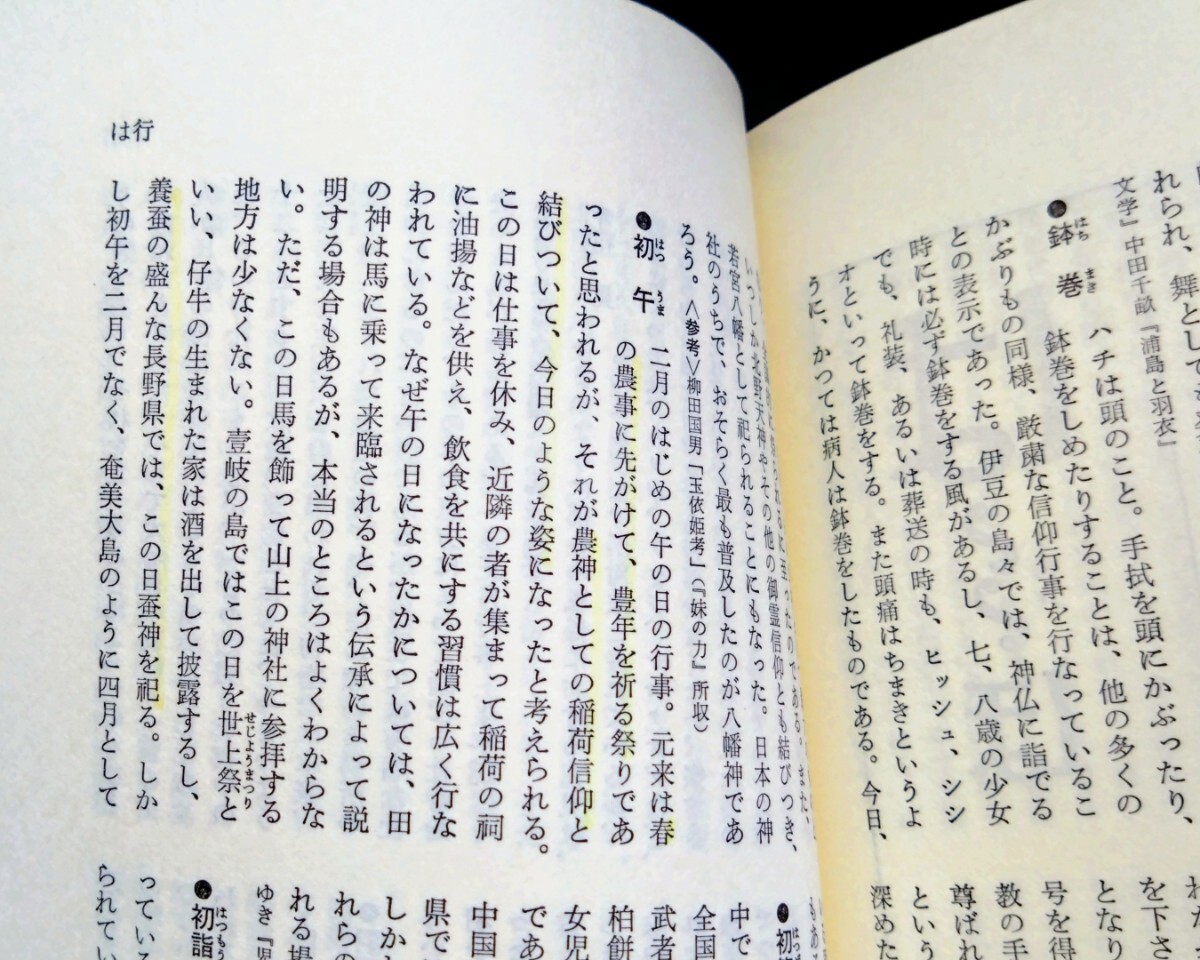 れられ、舞として
文学』中田千畝『浦島と羽衣』
●鉢巻 ハチは頭のこと。手拭を頭にかぶったり、
鉢巻をしめたりすることは、他の多くの
かぶりもの同様、厳粛な信仰行事を行なっているこ
との表示であった。伊豆の島々では、神仏に詣でる
時には必ず鉢巻をする風があるし、七、八歳の少女
でも、礼装、あるいは葬送の時も、ヒッシュ、シシ
オといって鉢巻をする。また頭痛はちまきというよ
うに、かつては病人は鉢巻をしたものである。今日、
を下さ
となり
号を得
教の手
尊ばれ
という
深めた
は行
いつしか北野天神やその他の御霊信仰とも結びつき、
若宮八幡として祀られることにもなった。日本の神
社のうちで、おそらく最も普及したのが八幡神であ
ろう。〈参考〉柳田国男「玉依姫考」(『妹の力』所収)
●初午 二月のはじめの午の日の行事。元来は春
の農事に先がけて、豊年を祈る祭りであ
ったと思われるが、それが農神としての稲荷信仰と
結びついて、今日のような姿になったと考えられる。
この日は仕事を休み、近隣の者が集まって稲荷の祠
に油揚などを供え、飲食を共にする習慣は広く行な
われている。なぜ午の日になったかについては、田
の神は馬に乗って来臨されるという伝承によって説
明する場合もあるが、本当のところはよくわからな
い。ただ、この日馬を飾って山上の神社に参拝する
地方は少なくない。壹岐の島ではこの日を世上祭と
いい、仔牛の生まれた家は酒を出して披露するし、
養蚕の盛んな長野県では、この日蚕神を祀る。しか
し初午を二月でなく、奄美大島のように四月として
●初
中で
全国
武者
柏餅
女児
であ
中国
県で
しか
れらの
れる場
ゆき『児
●初詣
っている
られてい